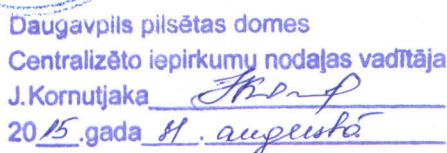 Daugavpils pilsētas domes
Centralizēto iepirkumu nodaļas vadītāja
J.Kornutjaka
2015.gada 31. augustā